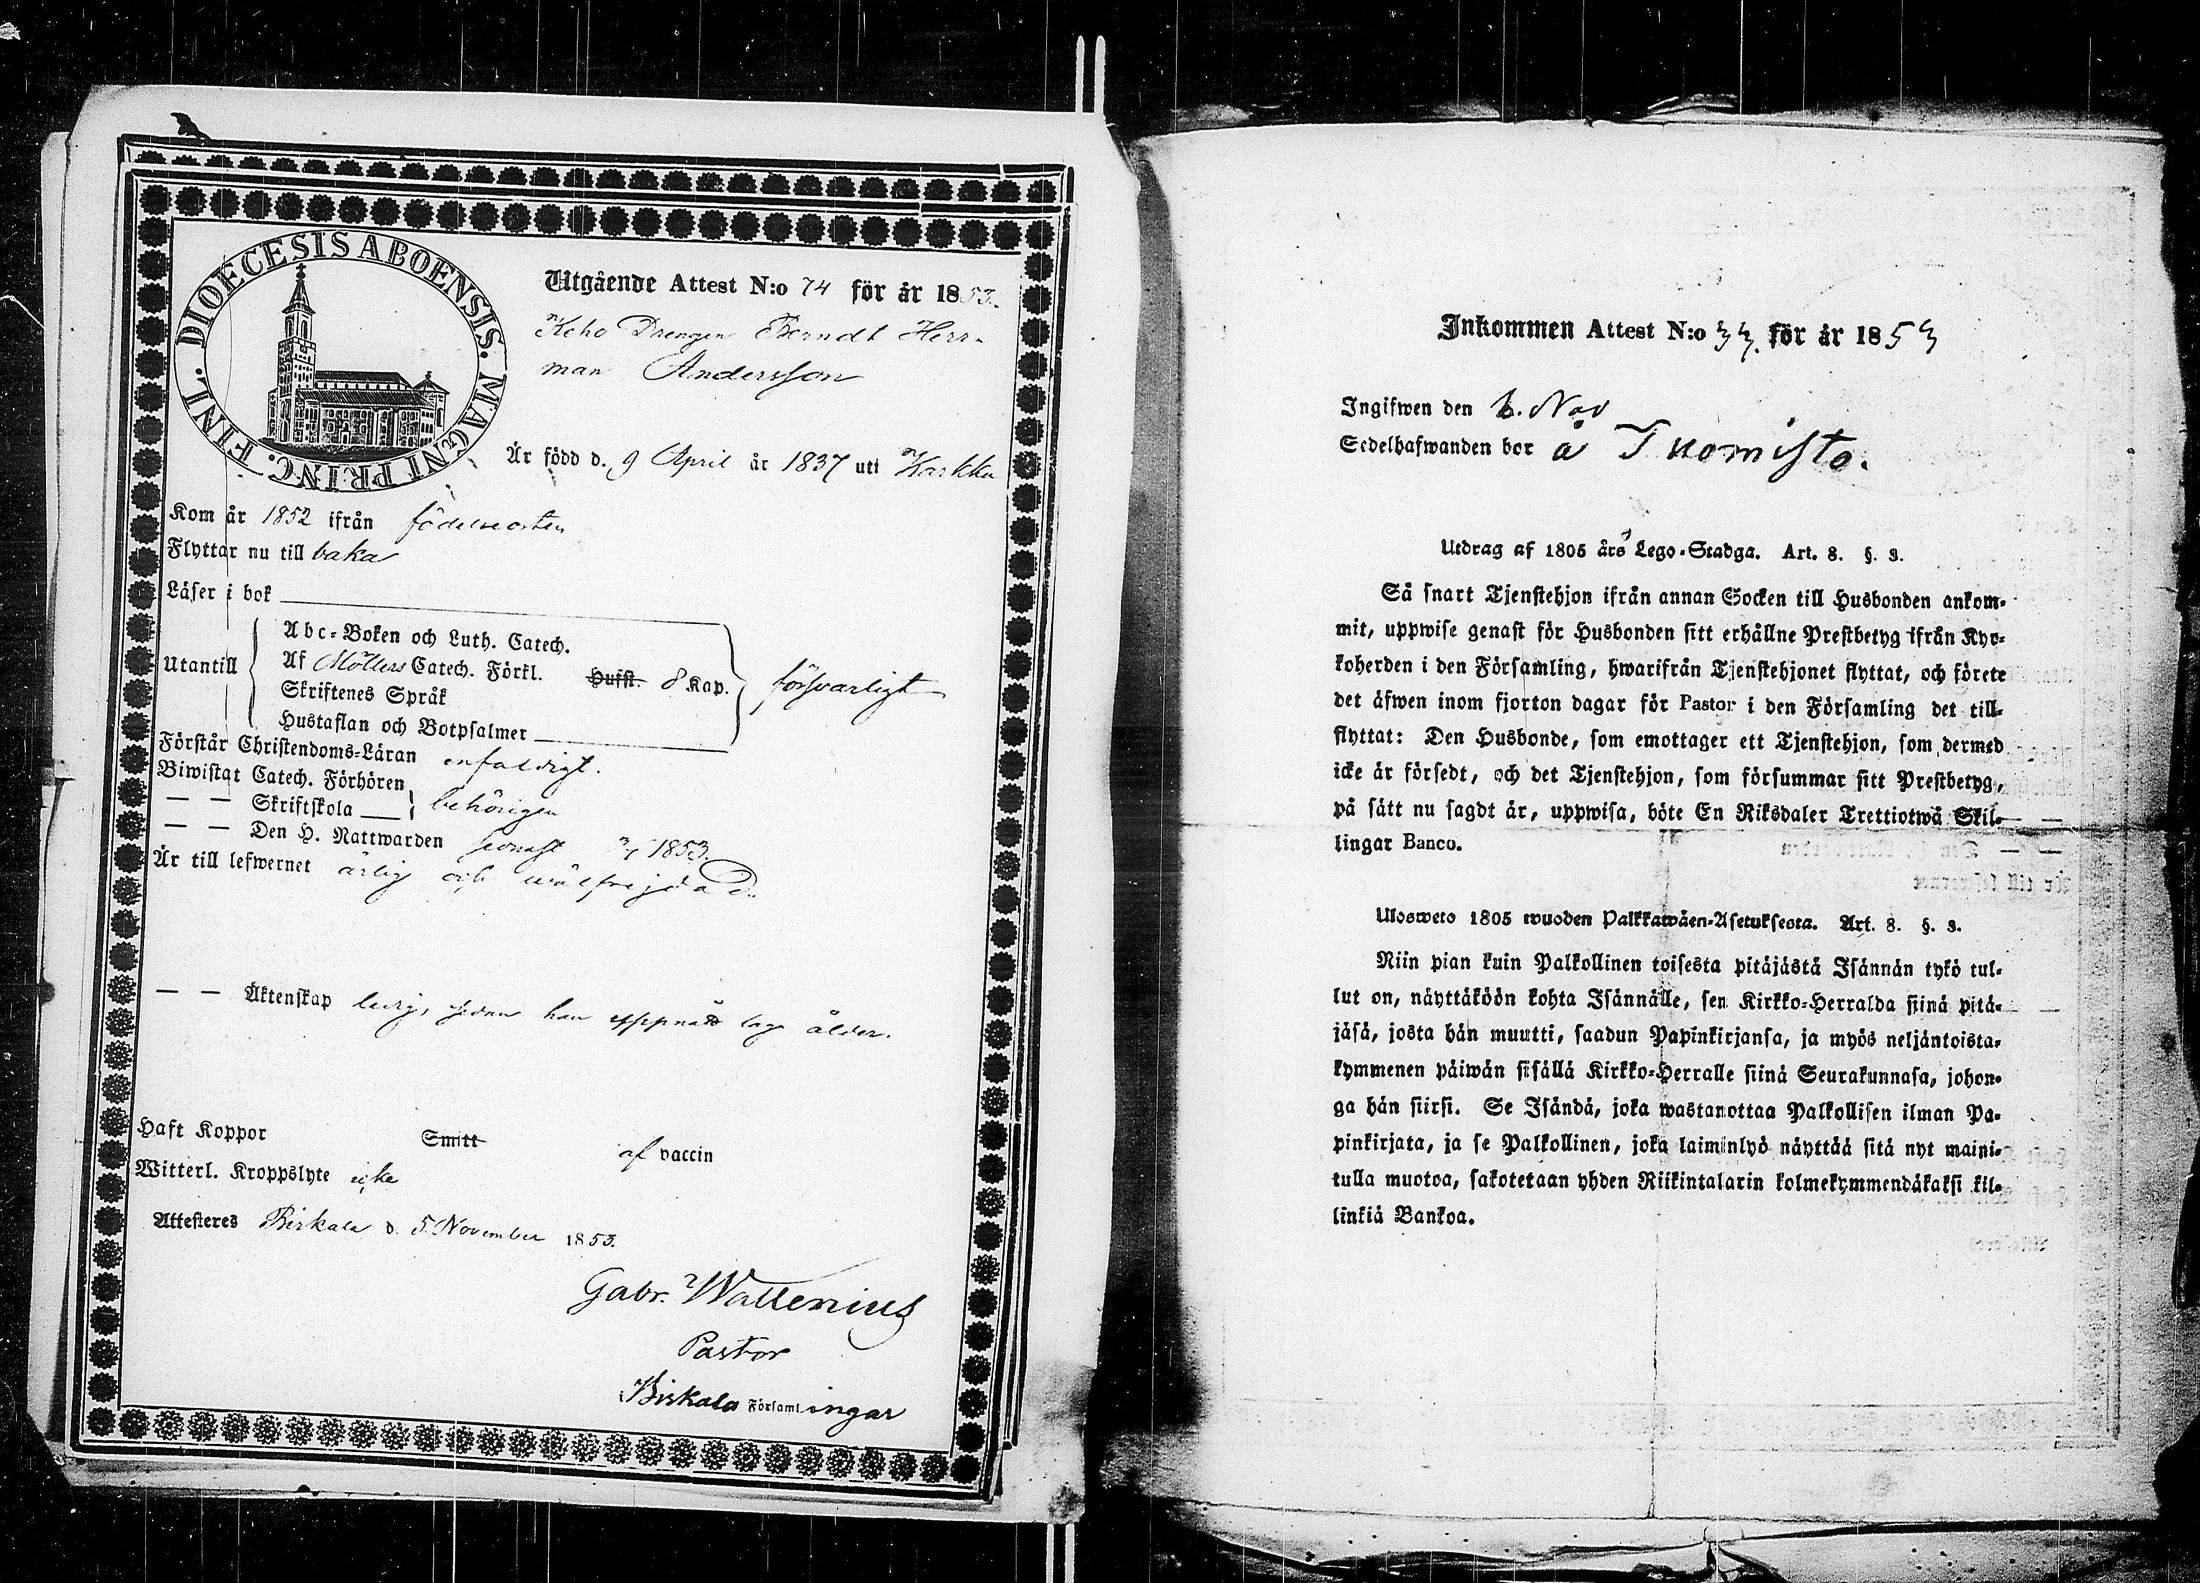 DIOECESIS ABOENSIS. MAGNI PRINC. FINL.
Utgående Attest N:o 74 för år 1853.
Keho Drengen Berndt Herr-
man Andersson
Är född d. 9 April år 1837 uti Karkku
Kom år 1852 ifrån födelseorten
Flyttar nu till baka
Läser i bok
Utantill
Abc-Boken och Luth. Catech.
Af Möllers Catech. Förkl. Hufst. 8 Kap. försvarligt
Skriftenes Språk
Hustaflan och Botpsalmer
Förstår Christendoms-Läran enfaldigt.
Biwistat Catech. Förhören
— — Skriftskola behörigen
— — Den H. Nattwarden senast 1853.
Är till lefwernet ärlig och wälfrejdad.
— — Äktenskap ledig, sedan han uppnått lag ålder.
Haft Koppor Smitt af vaccin
Witterl. Kroppslyte icke
Attesteres Birkala d. 5 November 1853.
Gabr. Wallenius
Pastor
Birkala Församlingar
Inkommen Attest N:o 33. för år 1853
Ingifwen den Nov
Sedelhafwanden bor å Tuomisto.
Utdrag af 1805 års Lego-Stadga. Art. 8. §. 3.
Så snart Tjenstehjon ifrån annan Socken till Husbonden ankom-
mit, uppwise genast för Husbonden sitt erhållne Prestbetyg ifrån Kyr-
koherden i den Församling, hwarifrån Tjenstehjonet flyttat, och förete
det äfwen inom fjorton dagar för Pastor i den Församling det till-
flyttat: Den Husbonde, som emottager ett Tjenstehjon, som dermed
icke är försedt, och det Tjenstehjon, som försummar sitt Prestbetyg,
på sätt nu sagdt är, uppwisa, böte En Riksdaler Trettiotwå Skil-
lingar Banco.
Ulosweto 1805 wuoden Palkkawäen-Asetuksesta. Art. 8. §. 3.
Niin pian kuin Palkollinen toisesta pitäjästä Isännän tykö tul-
lut on, näyttäköön kohta Isännälle, sen Kirkko-Herralda siinä pitä-
jäsä, josta hän muutti, saadun Papinkirjansa, ja myös neljäntoista-
kymmenen päiwän sisällä Kirkko-Herralle siinä Seurakunnasa, johon-
ga hän siirsi. Se Isändä, joka wastanottaa Palkollisen ilman Pa-
pinkirjata, ja se Palkollinen, joka laiminlyö näyttää sitä nyt maini-
tulla muotoa, sakotetaan yhden Riikintalarin kolmekymmendäkaksi kil-
linkiä Bankoa.